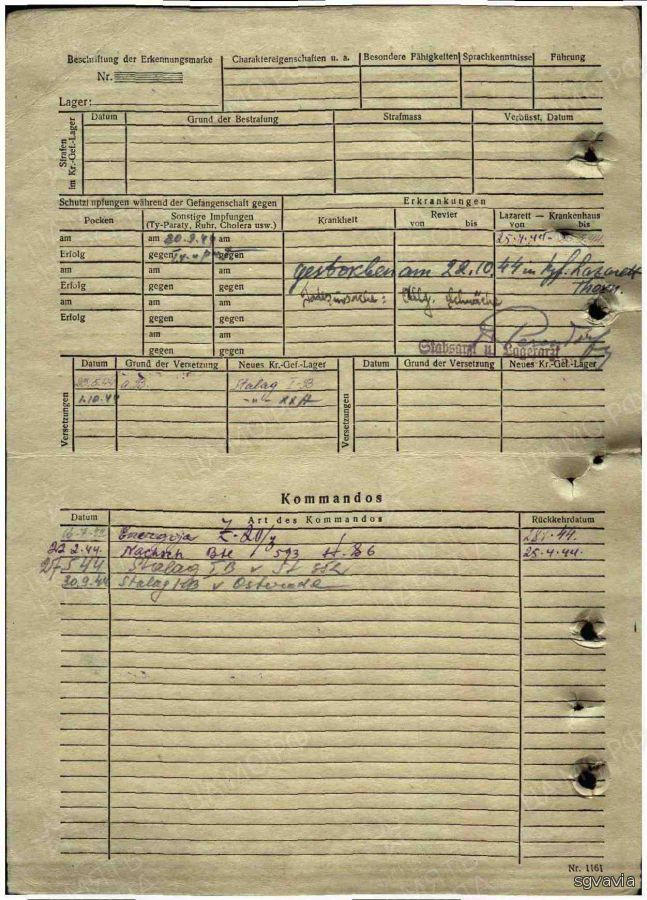 Beschriftung der Erkennungsmarke
Nr.
Lager:
Charaktereigenschaften u. a.
Besondere Fähigkeiten
Sprachkenntnisse
Führung
Strafen im Kr.-Gef.-Lager
Datum
Grund der Bestrafung
Strafmass
Verbüsst, Datum
Schutzimpfungen während der Gefangenschaft gegen
Erkrankungen
Pocken
Sonstige Impfungen
(Ty-Paraty, Ruhr, Cholera usw.)
Krankheit
Revier
von bis
Lazarett — Krankenhaus
von bis
am am 30.9.44 am
25.4.44-
Erfolg gegen gegen
am am am
gestorben am 22.10.44 in Kgf. Lazarett
Thorn.
Erfolg gegen gegen
am am am
Todesursache: Allg. Schwäche
Erfolg gegen gegen
am am
gegen gegen
Stabsarzt u. Lagerarzt
Versetzungen
Datum
Grund der Versetzung
Neues Kr.-Gef.-Lager
Stalag I-B
1.10.44 -"- XXA
Versetzungen
Datum
Grund der Versetzung
Neues Kr.-Gef.-Lager
Kommandos
Datum
Art des Kommandos
Rückkehrdatum
22.2.44. 593 25.4.44.
27.5.44 Stalag IB v St
30.9.44 Stalag IB v Osterode
Nr. 1161
sgvavia